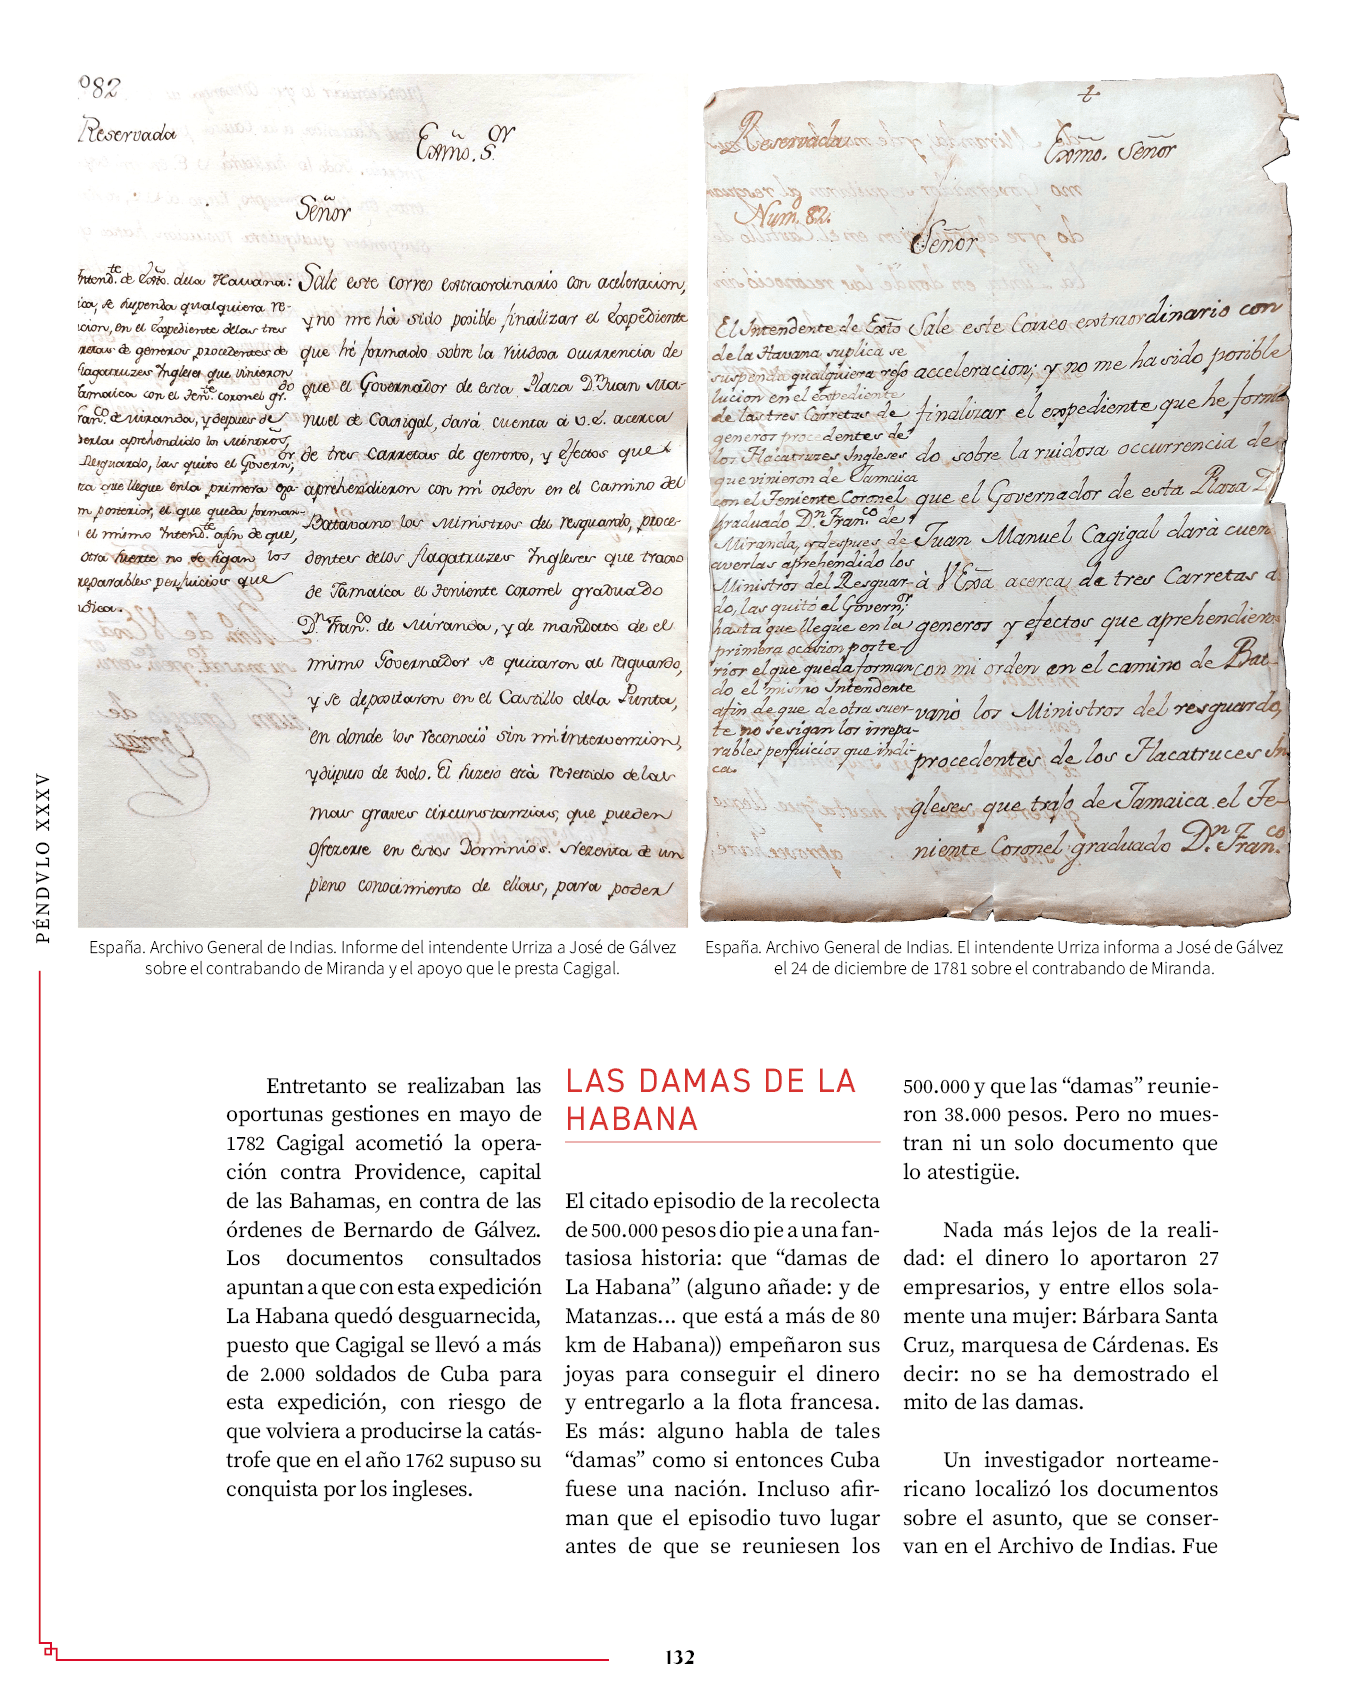 982
Reservada
Exmo. Sor
Señor
Intendte. de Exto. dela Havana:
ica, se suspenda qualquiera re-
cion, en el Expediente delas tres
rretas de generos procedentes de
flagatruzes Ingleses que vinieron
Jamaica con el Tente. coronel gr.do
Franco. de Miranda, y depues de
verlas aprehendido los Ministros,
Resguardo, las quito el Governor,
ta que llegue enla primera oca-
n posterior, el que queda forman-
el mismo Intendte. afin de que,
otra suerte no se sigan los
reparables perjuicios que
ndica.
Sale este correo extraordinario con aceleracion,
y no me há sido posible finalizar el Expediente
que hé formado sobre la ruidosa ocurrencia de
que el Governador de esta Plaza Dn. Juan Ma-
nuel de Cagigal, dará cuenta á V.E. acerca
de tres carretas de generos, y efectos que
aprehendieron con mi orden en el Camino del
Batabano los Ministros del resguardo, proce-
dentes delos flagatruzes Ingleses que traxo
de Jamaica el Teniente coronel graduado
Dn. Franco. de Miranda, y de mandato de el
mismo Governador se quitaron al resguardo,
y se depositaron en el Castillo dela Punta,
en donde los reconoció sin mi intervenzion,
y dispuso de todo. El suzeso está revestido delas
mas graves circunstanzias, que pueden
ofrezerse en estos Dominios. Nezesita de un
pleno conocimiento de ellas, para poder
Reservada
Exmo. Señor
Num. 82.
Señor
El Intendente de Exto
de la Havana suplica se
suspenda qualquiera reso
lucion en el expediente
de las tres Carretas de
generos procedentes de
los Flacatruzes Ingleses
que vinieron de Jamaica
con el Teniente Coronel
graduado Dn. Franco. de
Miranda, y despues de
averlas aprehendido los
Ministros del Resguar-
do, las quitó el Governor.
hasta que llegue en la
primera ocasion poste-
rior el que queda forman
do el mismo Intendente
afin de que de otra suer-
te no se sigan los irrepa-
rables perjuicios que indi-
ca.
Sale este Correo extraordinario con
acceleracion; y no me ha sido posible
finalizar el expediente que he forma
do sobre la ruidosa occurrencia de
que el Governador de esta Plaza D
Juan Manuel Cagigal darà cuen
à V Exa acerca de tres Carretas d
generos y efectos que aprehendieron
con mi orden en el camino de Bat-
vanò los Ministros del resguardo,
procedentes de los Flacatruces In
gleses que trajo de Jamaica el Te-
niente Coronel graduado Dn. Franco.
España. Archivo General de Indias. Informe del intendente Urriza a José de Gálvez
sobre el contrabando de Miranda y el apoyo que le presta Cagigal.
España. Archivo General de Indias. El intendente Urriza informa a José de Gálvez
el 24 de diciembre de 1781 sobre el contrabando de Miranda.
PÉNDVLO XXXV
Entretanto se realizaban las
oportunas gestiones en mayo de
1782 Cagigal acometió la opera-
ción contra Providence, capital
de las Bahamas, en contra de las
órdenes de Bernardo de Gálvez.
Los documentos consultados
apuntan a que con esta expedición
La Habana quedó desguarnecida,
puesto que Cagigal se llevó a más
de 2.000 soldados de Cuba para
esta expedición, con riesgo de
que volviera a producirse la catás-
trofe que en el año 1762 supuso su
conquista por los ingleses.
LAS DAMAS DE LA
HABANA
El citado episodio de la recolecta
de 500.000 pesos dio pie a una fan-
tasiosa historia: que “damas de
La Habana” (alguno añade: y de
Matanzas... que está a más de 80
km de Habana)) empeñaron sus
joyas para conseguir el dinero
y entregarlo a la flota francesa.
Es más: alguno habla de tales
“damas” como si entonces Cuba
fuese una nación. Incluso afir-
man que el episodio tuvo lugar
antes de que se reuniesen los
500.000 y que las “damas” reunie-
ron 38.000 pesos. Pero no mues-
tran ni un solo documento que
lo atestigüe.
Nada más lejos de la reali-
dad: el dinero lo aportaron 27
empresarios, y entre ellos sola-
mente una mujer: Bárbara Santa
Cruz, marquesa de Cárdenas. Es
decir: no se ha demostrado el
mito de las damas.
Un investigador norteame-
ricano localizó los documentos
sobre el asunto, que se conser-
van en el Archivo de Indias. Fue
132